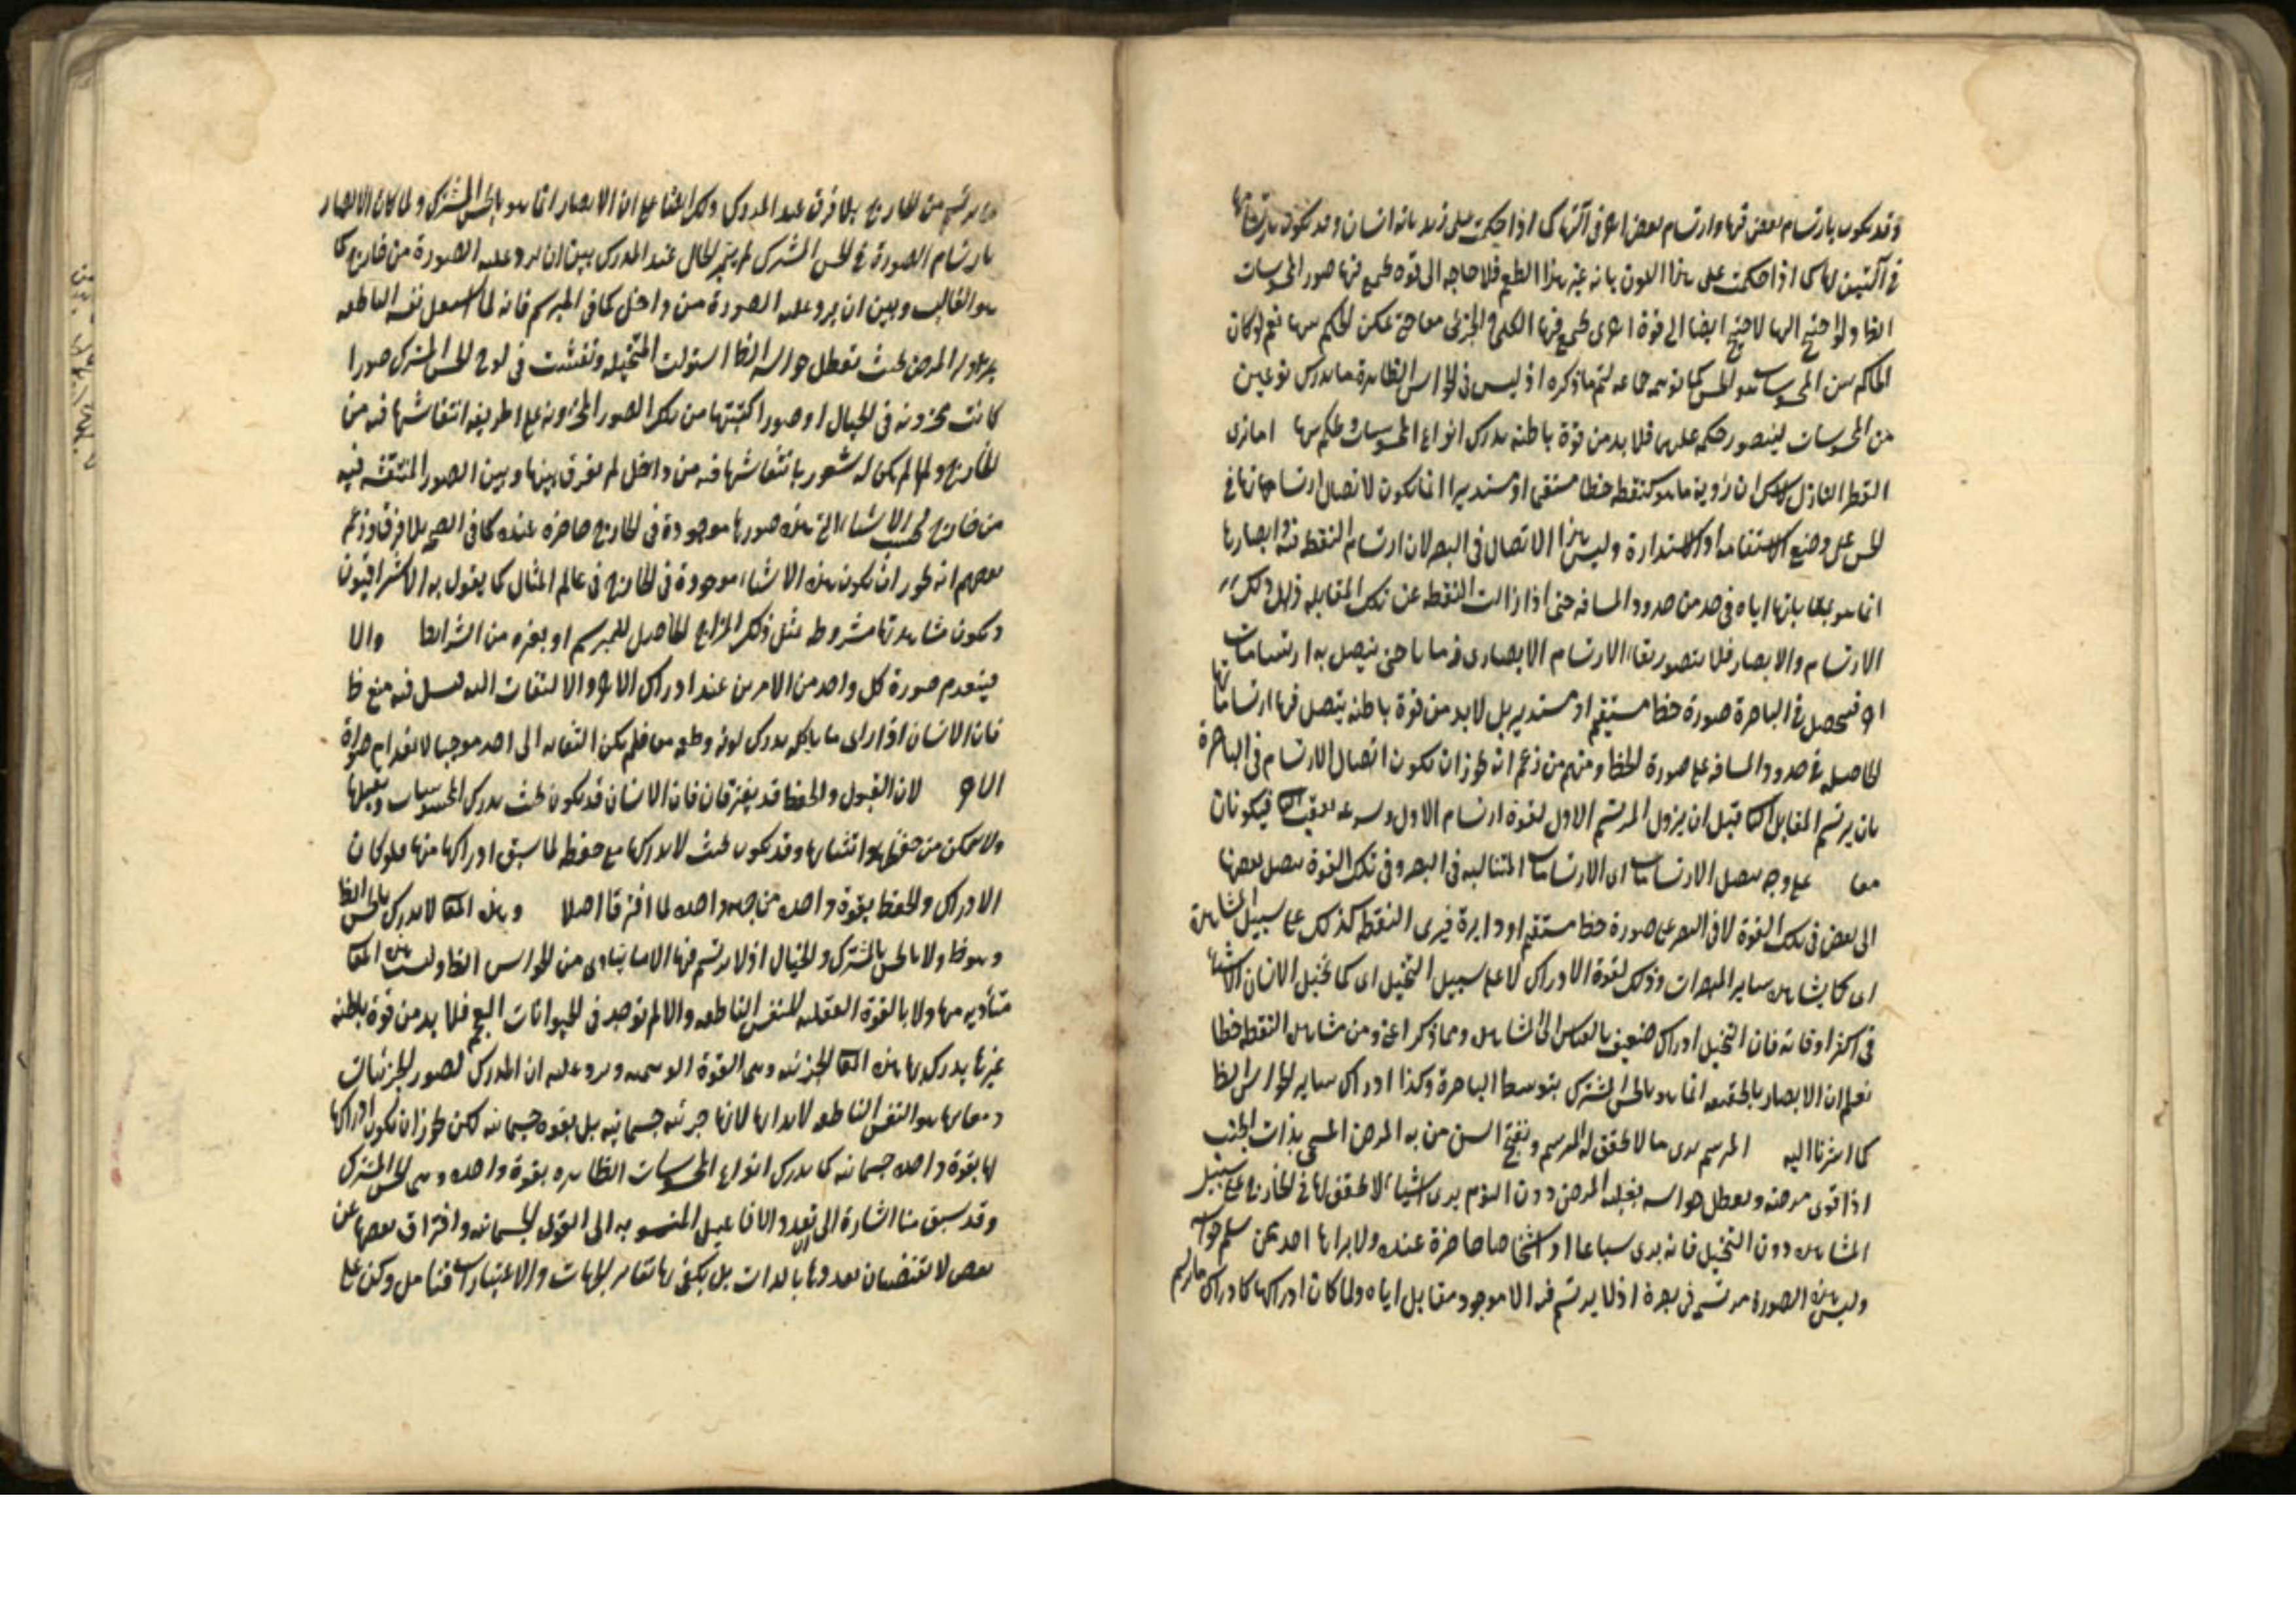 وقد يكون بارتسام بعض فيها وارتسام بعض اخر فى آلتها كما اذا حكمت على زيد بانه انسان وقد يكون بارتسامهما
فى آلتين لها كما اذا حكمت على هذا اللون بانه غير هذا الطعم فلا حاجه الى قوه يجتمع فيها صور المحسوسات
الظا ولو احتيج اليها لاحتيج ايضا الى قوة اخرى يجتمع فيها الكلى والجزئى معا حتى يمكن الحكم بينهما نعم لو كان
الحاكم بين المحسوسات هو الحس كما توهمه جماعه لتم ما ذكره اذ ليس فى الحواس الظاهرة ما يدرك نوعين
من المحسوسات ليتصور حكمه عليهما فلا بد من قوة باطنه يدرك انواع المحسوسات ليحكم بينها اما نرى
القطر النازل ان رؤية ما هو كنقطه خطا مستقيما او مستديرا انما يكون لاتصال ارتساماتها فى
الحس على وضع الاستقامه او الاستدارة وليس هذا الاتصال فى البصر لان ارتسام النقطه فيه وابصارها
انما هو بمقابلتها اياه فى حد من حدود المسافه حتى اذا زالت النقطه عن تلك المقابله زال ذلك
الارتسام والابصار فلا يتصور بقاء الارتسام الابصارى زمانا حتى يتصل به ارتسامات
اخر فيحصل فى الباصرة صورة خط مستقيم او مستدير بل لابد من قوة باطنه يتصل فيها ارتساماتها
الحاصله فى حدود المسافه على صورة الخط ومنهم من زعم انه يجوز ان يكون اتصال الارتسام فى الباصرة
بان يرتسم المقابل الثا قبل ان يزول المرتسم الاول لقوة ارتسام الاول وسرعه تعقب الثا فيكونان
معا على وجه يتصل الارتسامات اى الارتسامات المتتاليه فى البصر وفى تلك القوة يتصل بعضها
الى بعض فى تلك القوة لا فى البصر على صورة خط مستقيم او دايرة فيرى النقطه كذلك على سبيل المشاهدة
اى كما يشاهد ساير المبصرات وذلك لقوة الادراك لا على سبيل التخيل اى كما تخيل الانسان الاشياء
فى اكثر اوقاته فان التخيل ادراك ضعيف بالقياس الى المشاهده ومما ذكر اعنى ومن مشاهده النقطه خطا
نعلم ان الابصار بالحقيقه انما هو بالحس المشترك بتوسط الباصرة وكذا ادراك ساير الحواس الظا
كما اشرنا اليه المبرسم يرى ما لا تحقق له المبرسم وبفتح السين من به المرض المسمى بذات الجنب
اذا قوى مرضه وتعطل حواسه بغلبه المرض دون النوم يرى اشياء لا تحقق لها فى الخارج على سبيل
المشاهده دون التخيل فانه يرى سباعا او اشخاصا حاضرة عنده ولا يراها احد ممن سلم حواسه
وليس هذه الصورة مرتسمة فى بصرة اذ لا يرتسم فيه الا موجود مقابل اياه ولما كان ادراكها كادراك ما يرتسم
يرتسم من الخارج بلا فرق عند المدرك وذلك ايضا على ان الابصار انما هو بالحس المشترك ولما كان الابصار
بارتسام الصورة فى الحس المشترك لم يتميز الحال عند المدرك بين ان يرد عليه الصورة من خارج كما
هو الغالب وبين ان يرد عليه الصورة من داخل كما فى المبرسم فانه لما اشتغل نفسه الناطقه
المرض بحيث تعطل حواسه الظا استولت المتخيله ونقشت فى لوح الحس المشترك صورا
كانت مخزونه فى الخيال او صورا ركبتها من تلك الصور المخزونه على طريقه انتقاشها فيه من
الخارج ولما لم يكن له شعور بانتقاشها فيه من داخل لم يفرق بينها وبين الصور المنتقشه فيه
من خارج فيحسب الاشياء التى هذه صورها موجودة فى الخارج حاضره عنده كما فى الصحيح بلا فرق وزعم
بعضهم انه يجوز ان يكون هذه الاشياء موجودة فى الخارج فى عالم المثال كما يقول به الاشراقيون
ويكون مشاهدتها مشروطه بمثل ذلك المزاج الحاصل للمبرسم او بغيره من الشرايط والا
فينعدم صورة كل واحد من الامرين عند ادراك الاخر والالتفات اليه قيل فيه منع ظ
فان الانسان اذا راى ما ياكله يدرك لونه وطعمه معا فلم يكن التفاته الى احدهما موجبا لانعدام صورة
الاخر لان القبول والحفظ قد يفترقان فان الانسان قد يكون بحيث يدرك المحسوسات ويقبلها
ولا يتمكن من حفظها وانتقاشها وقد يكون بحيث لا يدركها مع حفظه لما سبق ادراكها منها فلو كان
الادراك والحفظ بقوة واحده من جهه واحده لما افترقا اصلا وهذه المعا لا يدرك بالحس الظا
وهو ظ ولا بالحس المشترك والخيال اذ لا يرتسم فيها الا ما يتادى من الحواس الظا وليست هذه المعا
متأديه منها ولا بالقوة العقليه للنفس الناطقه والا لم توجد فى الحيوانات العجم فلا بد من قوة باطنه
غيرها يدرك بها هذه المعا الجزئيه وهى القوة الوهميه ويرد عليه ان المدرك لصور الجزئيات
ومعانيها هو النفس الناطقه لا بذاتها لانها جزئيه جسمانيه بل بقوه جسمانيه لكن يجوز ان يكون ادراكها
لها بقوة واحده جسمانيه كما يدرك انواع المحسوسات الظاهره بقوة واحده وهى الحس المشترك
وقد سبق منا اشارة الى تعدد الافاعيل المنسوبه الى القوى الجسمانيه وافتراق بعضها عن
بعض لا تقتضيان تعددها بالذات بل يكفى بها تغاير الجهات والاعتبارات فتامل وكن على